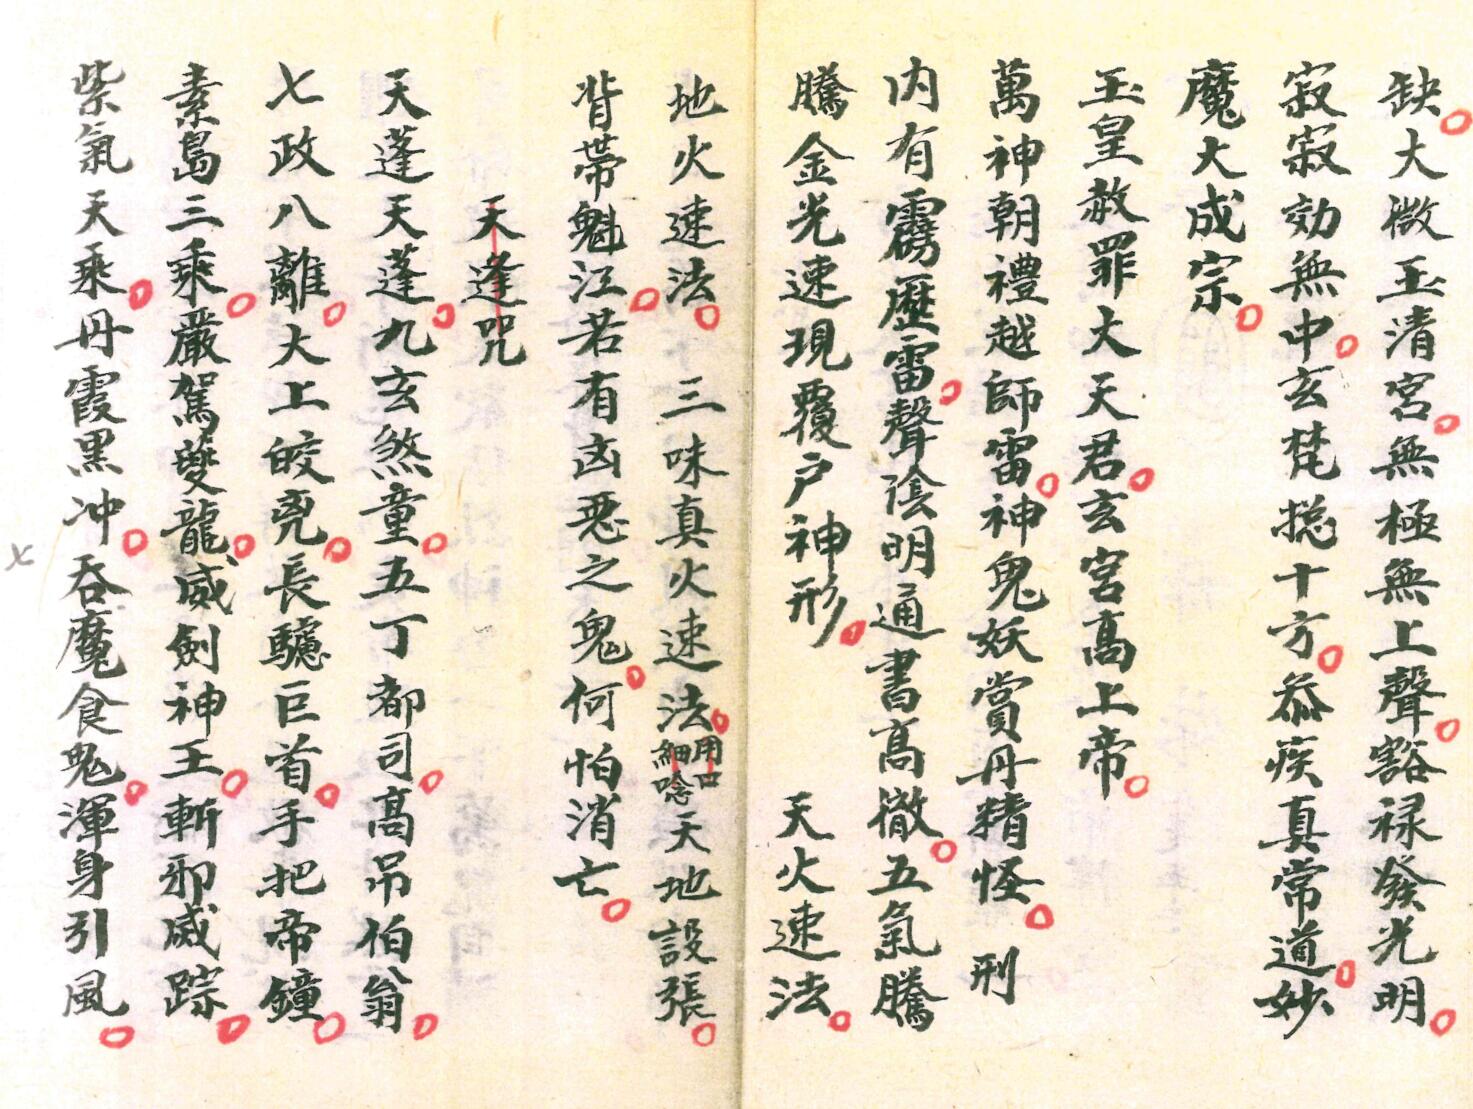 缺大微玉清宮無極無上聲豁禄發光明
寂寂効無中玄梵捴十方忝疾真常道妙
魔大成宗
玉皇赦罪大天君玄宮高上帝
萬神朝禮越師雷神鬼妖賞丹精怪 刑
内有靂歷雷聲陰明通書高徹五氣騰
騰金光速現覆户神形 天火速法
地火速法 三味真火速法用口細唸天地設張
背帶魁江若有凶惡之鬼何怕消亡
天逢咒
天蓬天蓬九玄煞童五丁都司高吊伯翁
七政八離大上皎兇長驢巨首手把帝鐘
素島三乘嚴駕夔龍威劍神王斬邪滅踪
紫氣天乘丹霞黑冲吞魔食鬼渾身引風